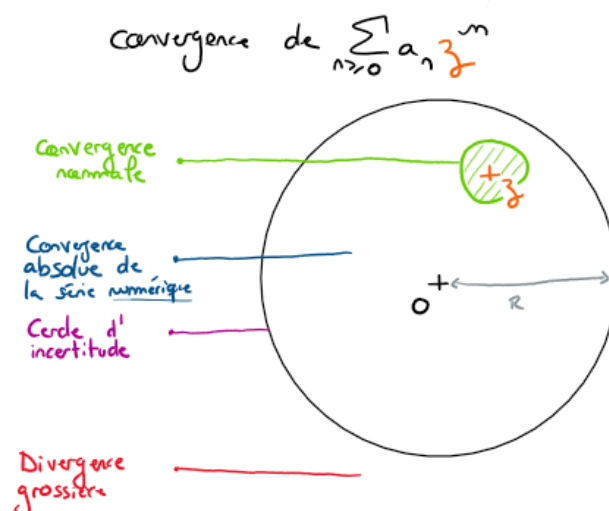 Convergence de ∑ aₙ zⁿ
n≥0
Convergence
normale
z
Convergence
absolue de
la série numérique
O
R
Cercle d'
incertitude
Divergence
grossière